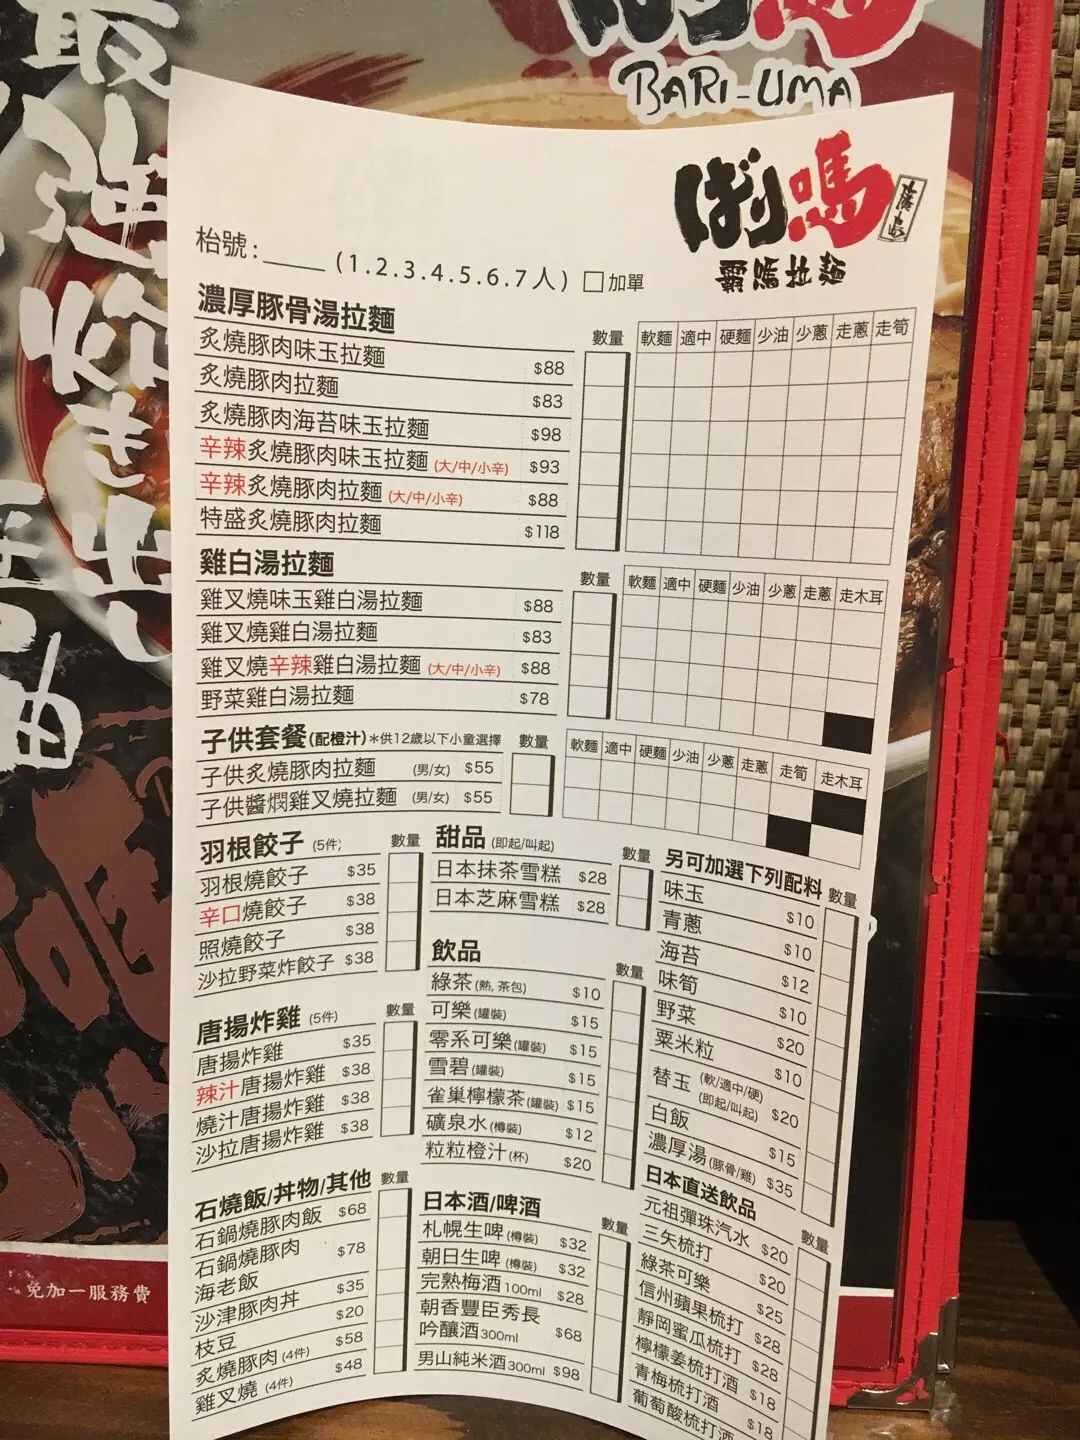 最強炊き出し
BARI-UMA
ばり嗎
廣島
霸嗎拉麵
枱號：_____ (1.2.3.4.5.6.7人) □加單
濃厚豚骨湯拉麵 數量 軟麵 適中 硬麵 少油 少蔥 走蔥 走筍
炙燒豚肉味玉拉麵 $88
炙燒豚肉拉麵 $83
炙燒豚肉海苔味玉拉麵 $98
辛辣炙燒豚肉味玉拉麵 (大/中/小辛) $93
辛辣炙燒豚肉拉麵 (大/中/小辛) $88
特盛炙燒豚肉拉麵 $118
雞白湯拉麵 數量 軟麵 適中 硬麵 少油 少蔥 走蔥 走木耳
雞叉燒味玉雞白湯拉麵 $88
雞叉燒雞白湯拉麵 $83
雞叉燒辛辣雞白湯拉麵 (大/中/小辛) $88
野菜雞白湯拉麵 $78
子供套餐(配橙汁)*供12歲以下小童選擇 數量 軟麵 適中 硬麵 少油 少蔥 走蔥 走筍 走木耳
子供炙燒豚肉拉麵 (男/女) $55
子供醬燜雞叉燒拉麵 (男/女) $55
羽根餃子 (5件) 數量
羽根燒餃子 $35
辛口燒餃子 $38
照燒餃子 $38
沙拉野菜炸餃子 $38
唐揚炸雞 (5件) 數量
唐揚炸雞 $35
辣汁唐揚炸雞 $38
燒汁唐揚炸雞 $38
沙拉唐揚炸雞 $38
石燒飯/丼物/其他 數量
石鍋燒豚肉飯 $68
石鍋燒豚肉
海老飯 $78
沙津豚肉丼 $35
枝豆 $20
炙燒豚肉 (4件) $58
雞叉燒 (4件) $48
甜品 (即起/叫起) 數量
日本抹茶雪糕 $28
日本芝麻雪糕 $28
飲品 數量
綠茶(熱, 茶包) $10
可樂(罐裝) $15
零系可樂(罐裝) $15
雪碧(罐裝) $15
雀巢檸檬茶(罐裝) $15
礦泉水(樽裝) $12
粒粒橙汁(杯) $20
日本酒/啤酒 數量
札幌生啤(樽裝) $32
朝日生啤(樽裝) $32
完熟梅酒100ml $28
朝香豐臣秀長
吟釀酒300ml $68
男山純米酒300ml $98
另可加選下列配料 數量
味玉 $10
青蔥 $10
海苔 $12
味筍 $10
野菜 $20
粟米粒 $10
替玉 (軟/適中/硬)
(即起/叫起) $20
白飯 $15
濃厚湯(豚骨/雞) $35
日本直送飲品 數量
元祖彈珠汽水 $20
三矢梳打 $20
綠茶可樂 $25
信州蘋果梳打 $28
靜岡蜜瓜梳打 $28
檸檬姜梳打酒 $18
青梅梳打酒 $18
葡萄酸梳打酒
免加一服務費